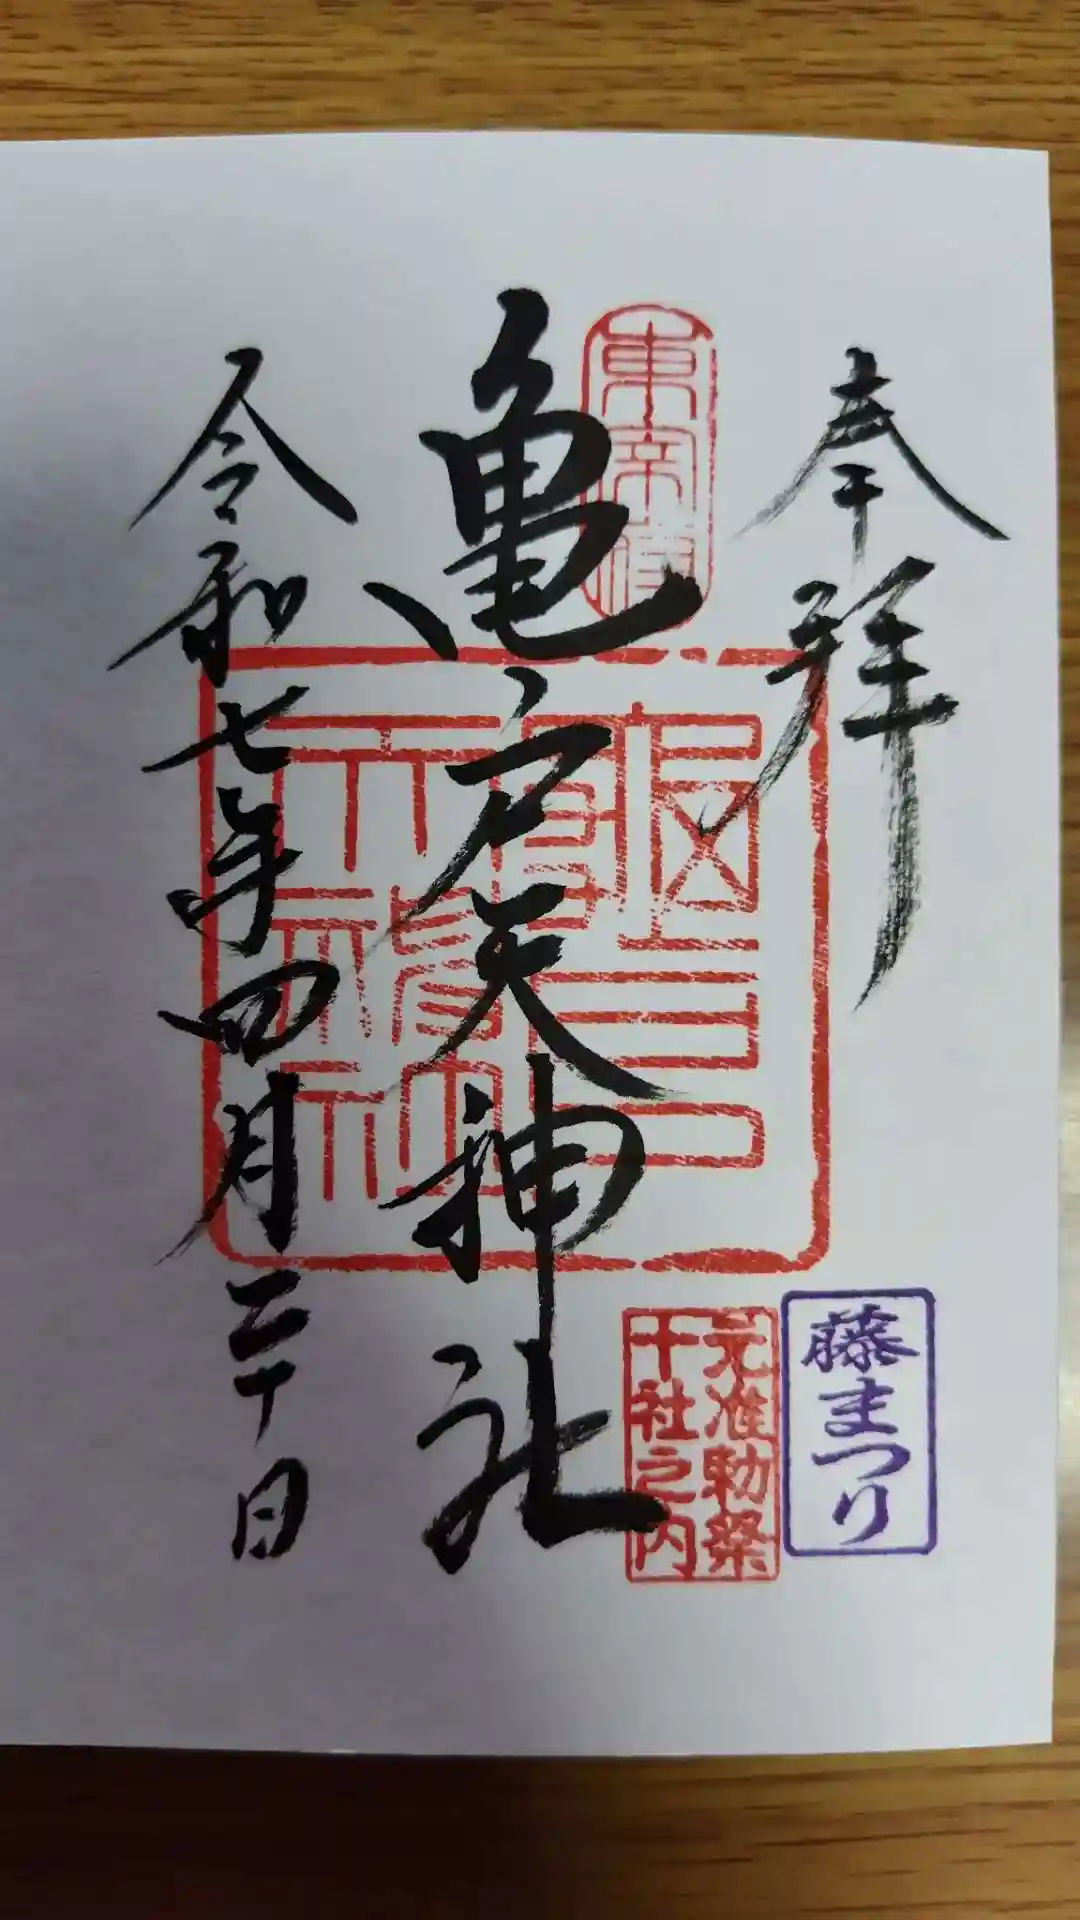 奉拝
亀戸天神社
令和七年四月二十日
東宰府
元准勅祭
十社之内
藤まつり